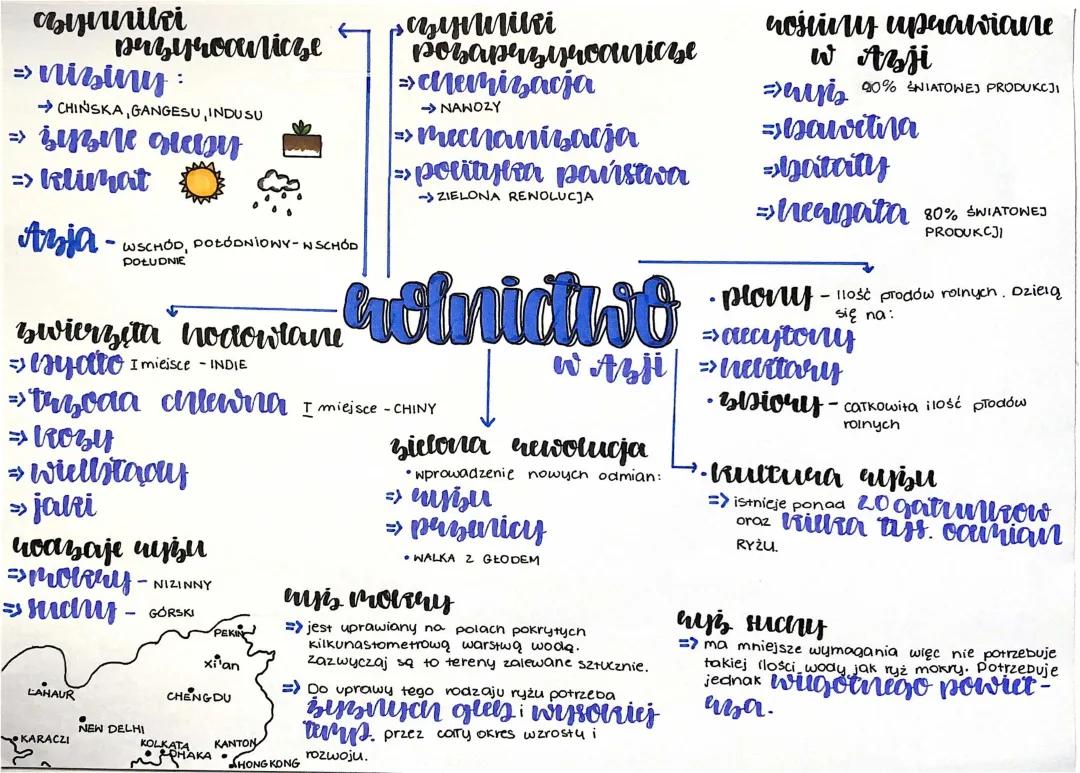 czynniki
przyrodnicze
=> niziny :
→ CHIŃSKA, GANGESU, INDUSU
=> żyzne gleby
=> klimat
Azja - WSCHÓD, POŁÓDNIOWY-WSCHÓD
POŁUDNIE
czynniki
pozaprzyrodnicze
=> chemizacja
→ NAWOZY
=> mechanizacja
=> polityka państwa
→ ZIELONA REWOLUCJA
rośliny uprawiane
w Azji
=> ryż 90% ŚWIATOWEJ PRODUKCJI
=> bawełna
=> bataty
=> herbata 80% ŚWIATOWEJ
PRODUKCJI
rolnictwo
w Azji
zwierzęta hodowlane
=> bydło I miejsce - INDIE
=> trzoda chlewna I miejsce - CHINY
=> kozy
=> wielbłądy
=> jaki
rodzaje ryżu
=> mokry - NIZINNY
=> suchy - GÓRSKI
zielona rewolucja
• wprowadzenie nowych odmian:
=> ryżu
=> pszenicy
• WALKA Z GŁODEM
• plony - ilość płodów rolnych. Dzielą
się na:
=> decytony
=> hektary
• zbiory - całkowita ilość płodów
rolnych
• kultura ryżu
=> istnieje ponad 20 gatunków
oraz kilka tyś. odmian
RYŻU.
PEKIN
Xi'an
LAHAUR
CHENGDU
NEW DELHI
KARACZI
KOLKATA
DHAKA
KANTON
HONGKONG
ryż mokry
=> jest uprawiany na polach pokrytych
kilkunastometrową warstwą wodą.
Zazwyczaj są to tereny zalewane sztucznie.
=> Do uprawy tego rodzaju ryżu potrzeba
żyznych gleb i wysokiej
temp. przez cały okres wzrostu i
rozwoju.
ryż suchy
=> ma mniejsze wymagania więc nie potrzebuje
takiej ilości wody jak ryż mokry. Potrzebuje
jednak wilgotnego powiet-
rza.